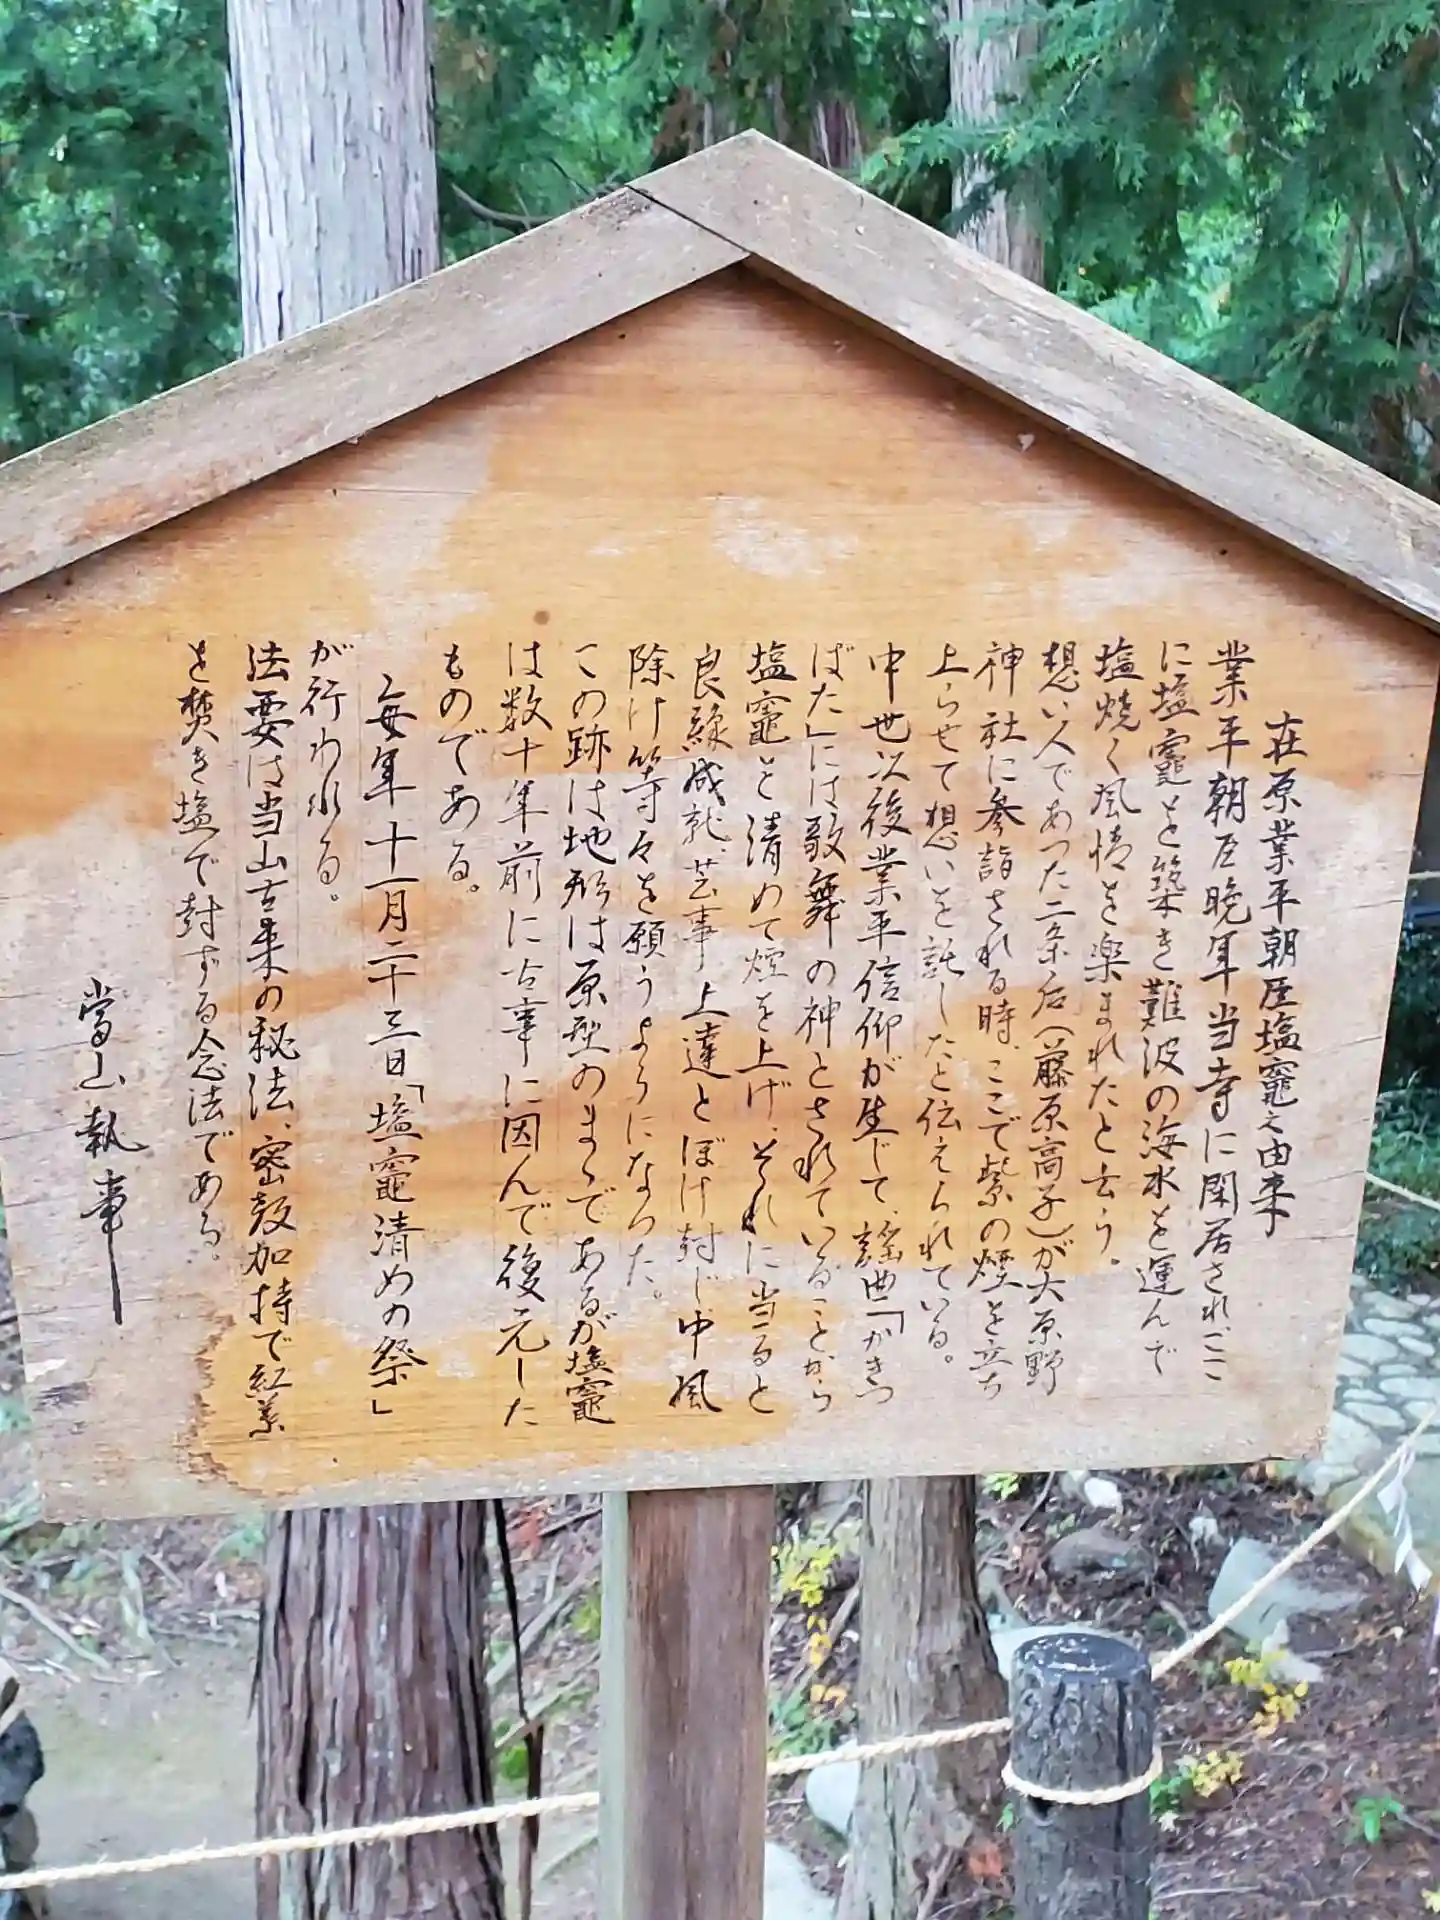 在原業平朝臣塩竈之由来
業平朝臣晩年当寺に閑居されここ
に塩竈を築き難波の海水を運んで
塩焼く風情を楽まれたと云う。
想い人であった二条后(藤原高子)が大原野
神社に参詣される時、ここで紫の煙を立ち
上らせて想いを託したと伝えられている。
中世以後業平信仰が生じて、謡曲「かきつ
ばた」には歌舞の神とされていることから
塩竈を清めて煙を上げ、それに当ると
良縁成就、芸事上達とぼけ封じ中風
除け等々を願うようになった。
この跡は地形は原型のまゝであるが塩竈
は数十年前に古事に因んで復元した
ものである。
毎年十一月二十三日「塩竈清めの祭」
が行われる。
法要は当山古来の秘法、密教加持で紅葉
を焚き塩で封ずる念法である。
當山執事